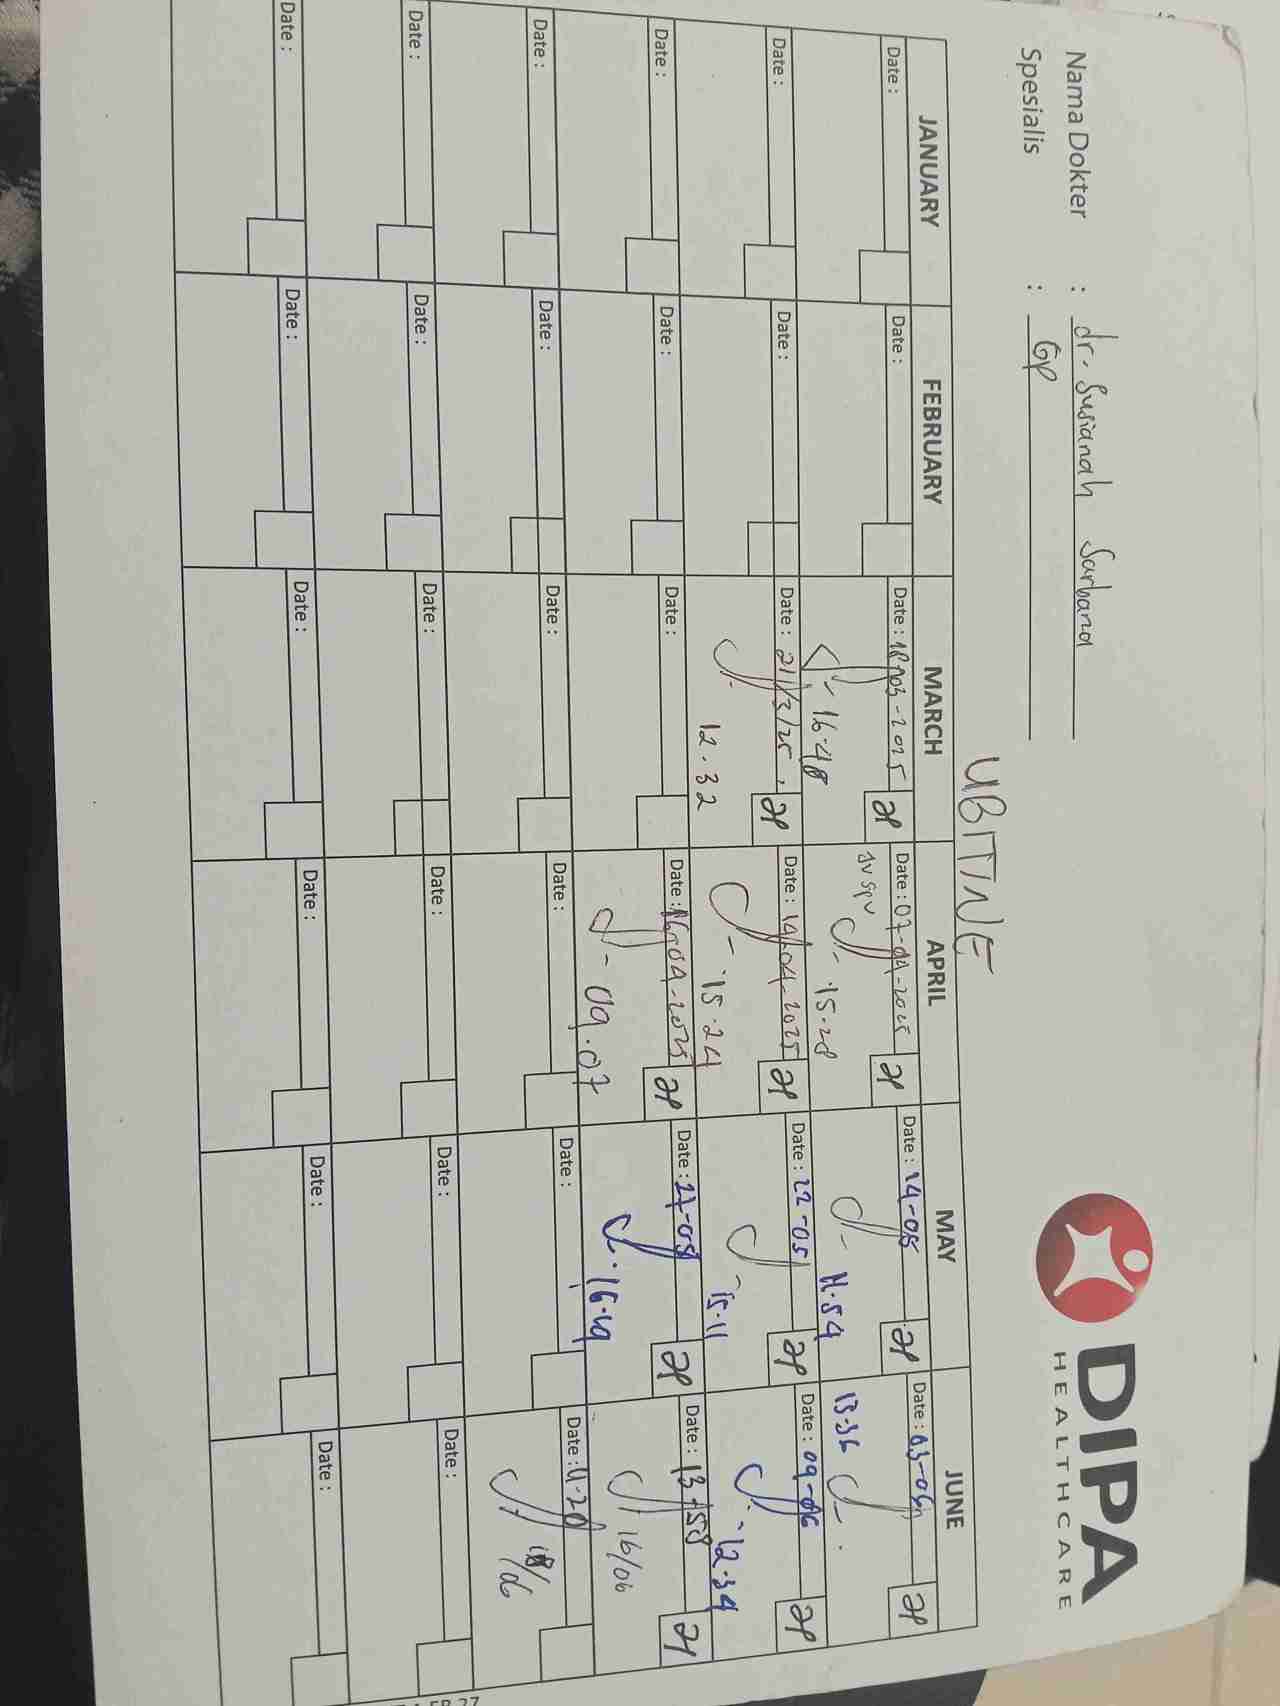 DIPA
HEALTHCARE
Nama Dokter : dr. Susianah Sarbana
Spesialis : GP
UBITINE
JANUARY FEBRUARY MARCH APRIL MAY JUNE
Date : Date : Date : 18-03-2025 Date : 07-04-2025 Date : 14-05 Date : 03-06
16.48 JV SPV 15.28 11.54 13.36
Date : Date : Date : 21/3/25 Date : 14-04-2025 Date : 22-05 Date : 09-06
12.32 15.24 15.11 12.34
Date : Date : Date : Date : 16-04-2025 Date : 27-05 Date : 13.58
09.07 16.49 16/06
Date : Date : Date : Date : Date : Date : 11.20
18/06
Date : Date : Date : Date : Date : Date :
Date : Date : Date : Date : Date : Date :